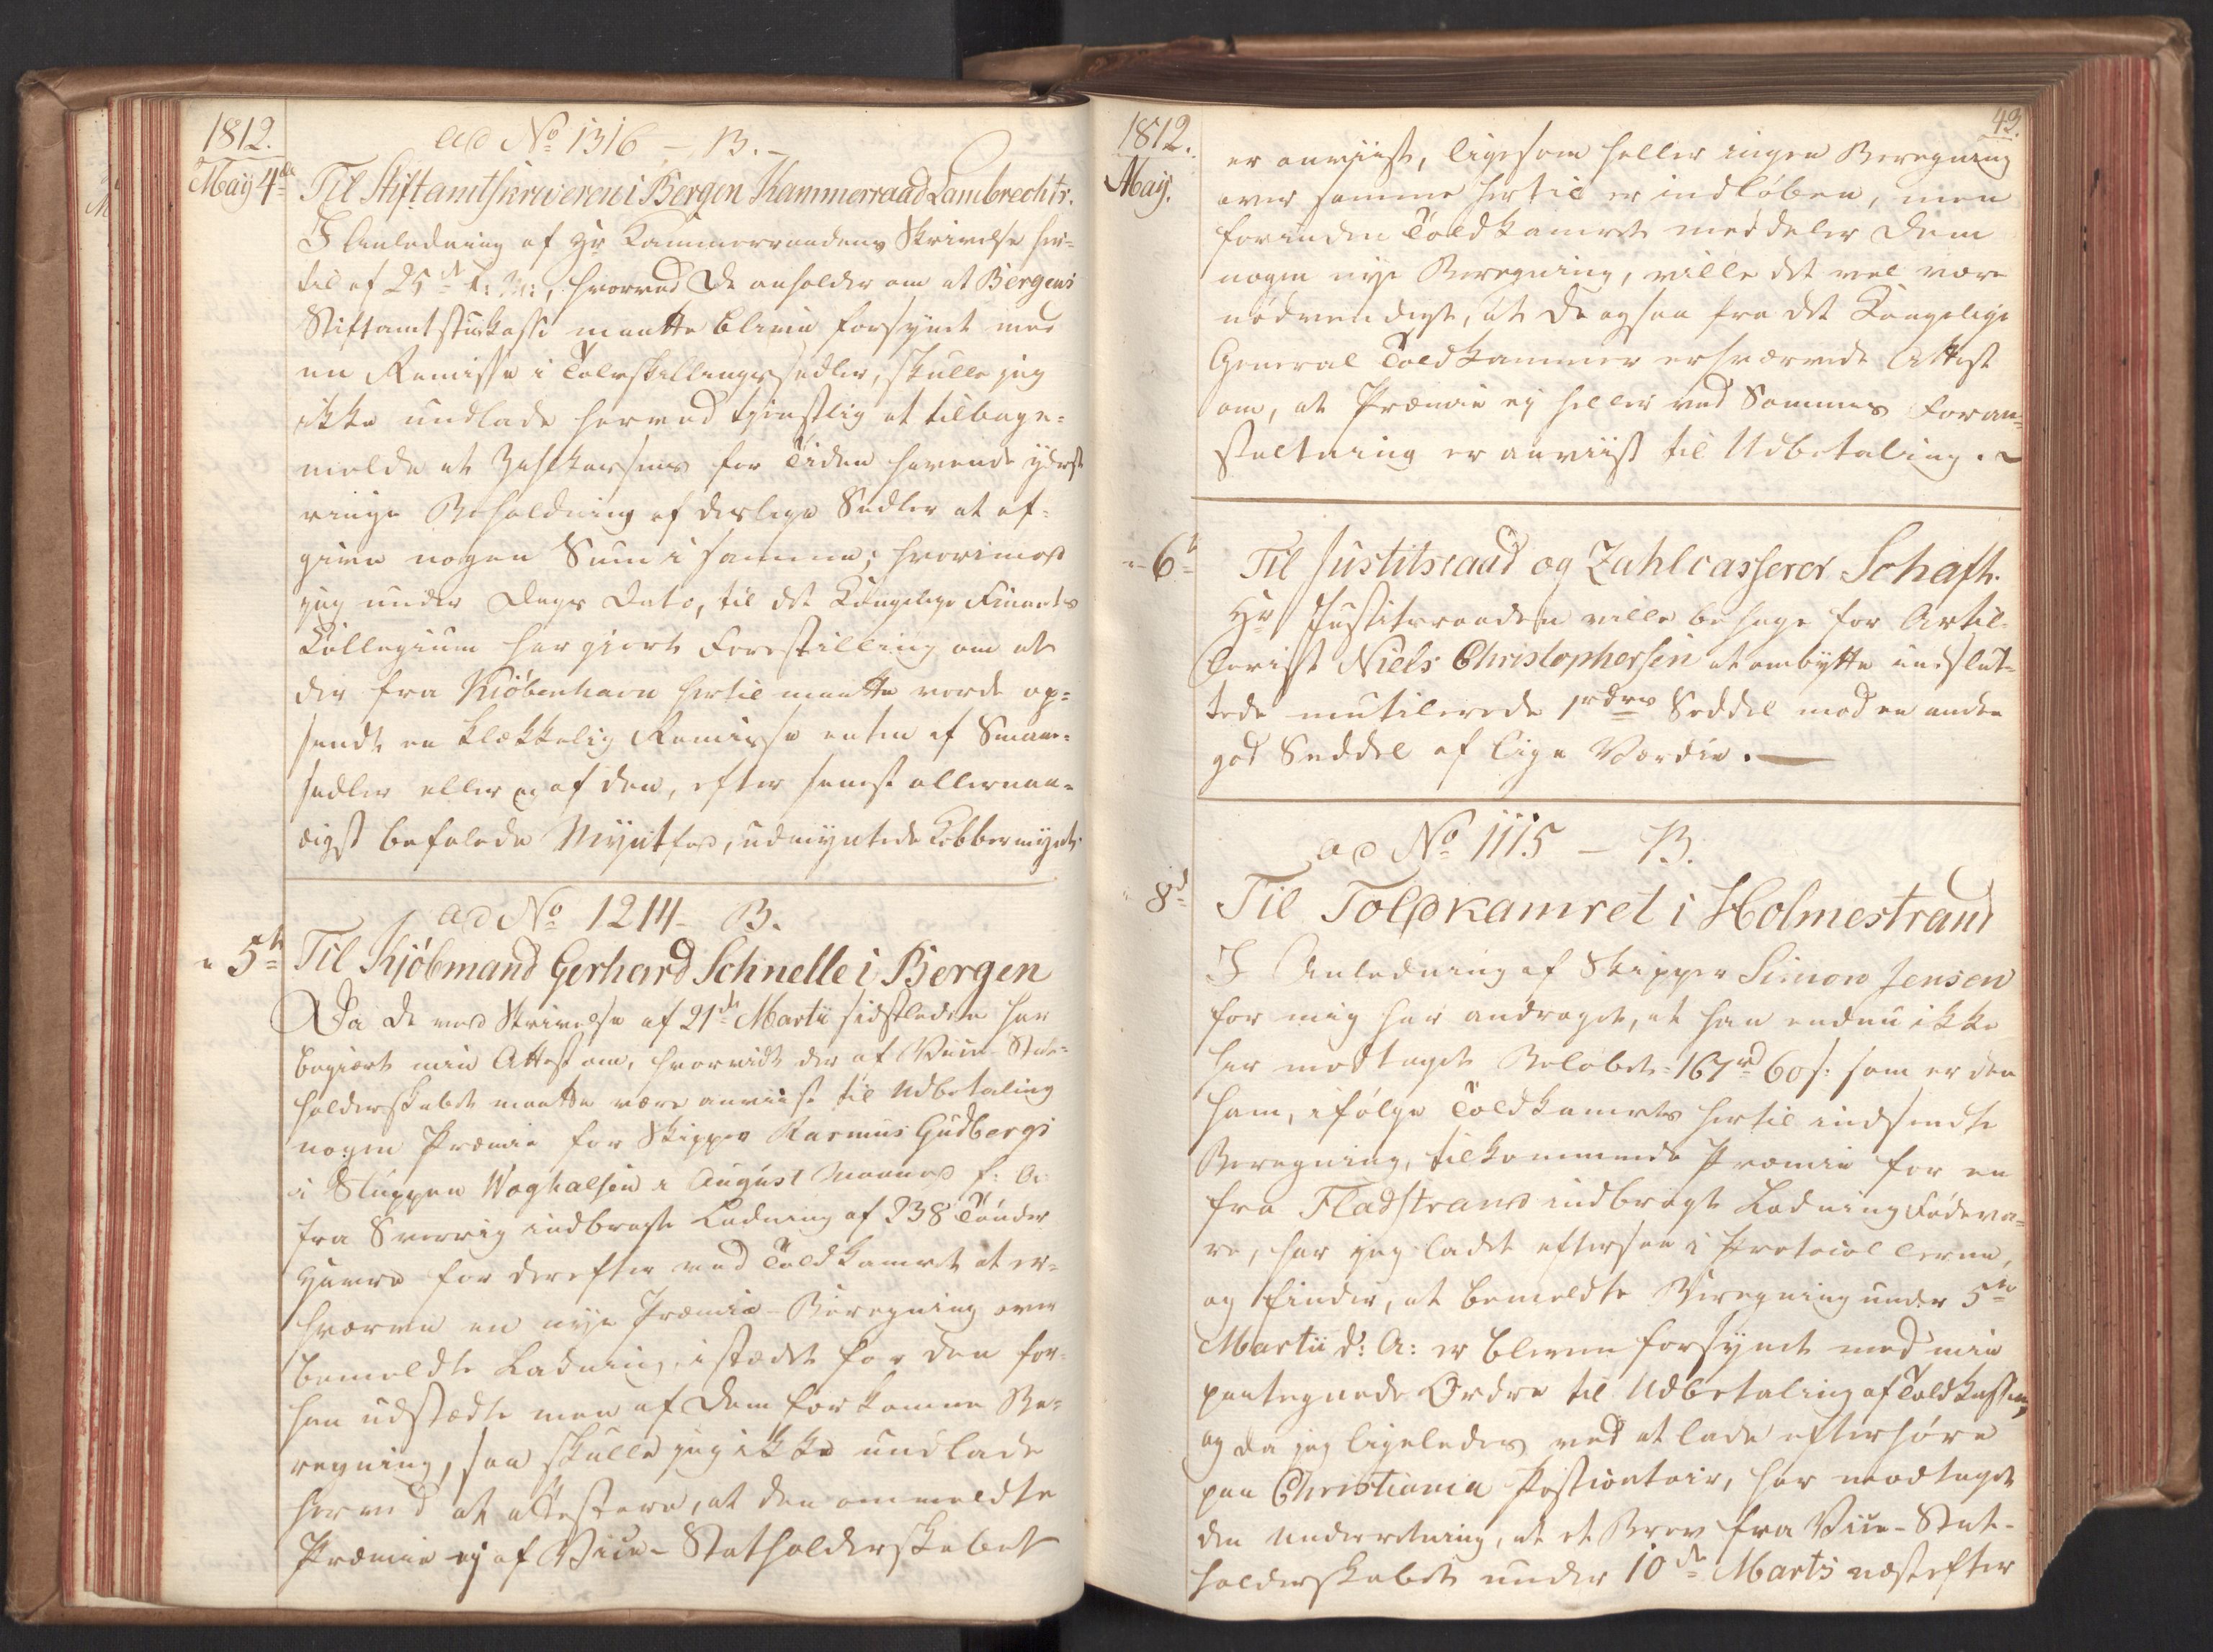 1812.
ad No 1316 – B. –
May 4de
Til Stiftamtskriveren i Bergen Kammerraad Lambrechts.
I Anledning af Hr Kammerraadens Skrivelse her=
til af 25de f: M:, hvorved De anholder om at Bergens
Stiftamtstuekasse maatte blive forsynet med
en Remisse i Tolvskillingssedler, skulle jeg
ikke undlade herved tjenstlig at tilbage=
melde at Zahlkassens for Tiden havende yderst
ringe Beholdning af deslige Sedler at af=
give nogen Sum i samme; hvorimod
jeg under Dags Dato, til det Kongelige Finants
Collegium har giort Forestilling om at
der fra Kiöbenhavn hertil maatte vorde op=
sendt en klækkelig Remisse enten af Smaae=
sedler eller og af den, efter senest allernaa=
digst befalede Myntfod, udmyntede Kobbermynt.
ad No 1214 – B.
" 5te
Til Kjöbmand Gerhard Schnelle i Bergen
Da De med Skrivelse af 21de Martii sidstleden har
begiert min Attest om, hvorvidt der af Vice-Stat=
holderskabet maatte være anviist til Udbetaling
nogen Præmie for Skipper Rasmus Gudbergs
i Sluppen Woghalsen i August Maaned f: A:
fra Sverrig indbragte Ladning af 238 Tönder
Havre for derefter ved Toldkamret at er=
hverve en nye Præmie-Beregning over
bemeldte Ladning, istædet for den for=
hen udstædte men af Dem forkomne Be=
regning, saa skulle jeg ikke undlade
herved at attestere, at den ommeldte
Præmie ej af Vice-Statholderskabet
43.
1812.
May.
er anviist, ligesom heller ingen Beregning
over samme hertil er indlöben, men
forinden Toldkamret meddeler Dem
nogen nye Beregning, ville det vel være
nödvendigt, at De ogsaa fra det Kongelige
General Toldkammer erhvervede Attest
om, at Præmie ej heller ved Sammes Foran=
staltning er anviist til Udbetaling. –
" 6te
Til Justitsraad og Zahlcasserer Schaft.
Hr Justitsraaden ville behage for Artil=
lerist Niels Christophersen at ombytte indslut=
tede mutilerede 1rdrs Seddel mod en anden
god Seddel af lige Værdie. —
ad No 1115 – B.
" 8de
Til Toldkamret i Holmestrand
I Anledning af Skipper Simon Jensen
for mig har andraget, at han endnu ikke
har modtaget Belöbet 167rd 60s: som er den
ham, ifölge Toldkamrets hertil indsendte
Beregning, tilkommende Præmie for en
fra Fladstrand indbragt Ladning Födeva=
re, har jeg ladet eftersee i Protocollerne,
og finder, at bemeldte Beregning under 5te
Martii d: A: er bleven forsynet med min
paategnede Ordre til Udbetaling af Toldkassen,
og da jeg ligeledes ved at lade efterhöre
paa Christiania Postcontoir, har modtaget
den Underretning, at et Brev fra Vice-Stat-
holderskabet under 10de Marts næstefter